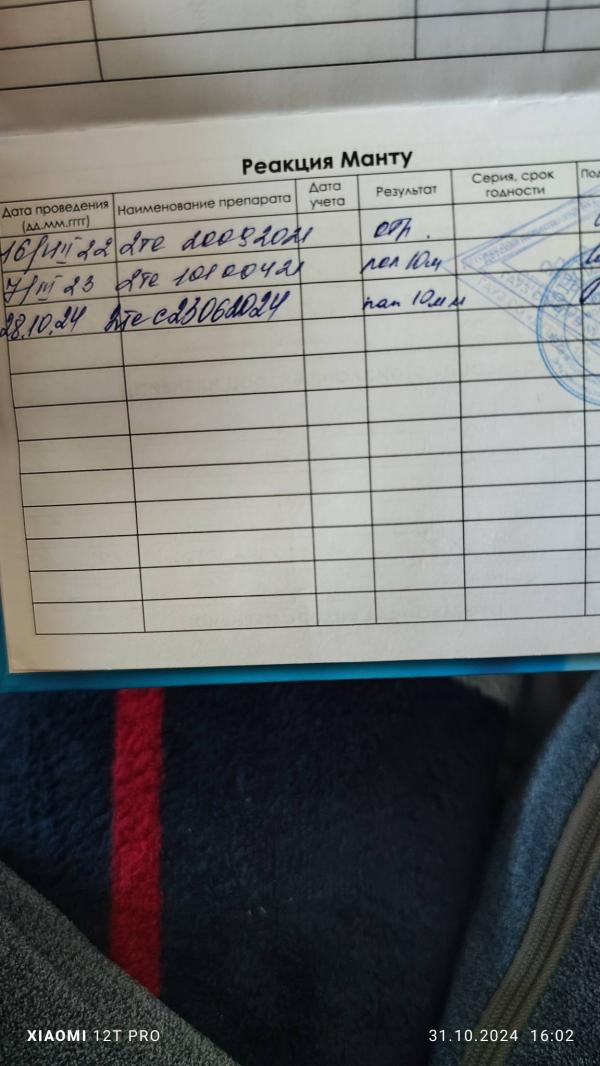 Реакция Манту
Дата проведения (дд.мм.гггг) Наименование препарата Дата учета Результат Серия, срок годности
16/III 22 2те 20092021 отр.
7/III 23 2те 10100421 пап 10м
28.10.24 2те с23062024 пап 10мм
XIAOMI 12T PRO
31.10.2024 16:02